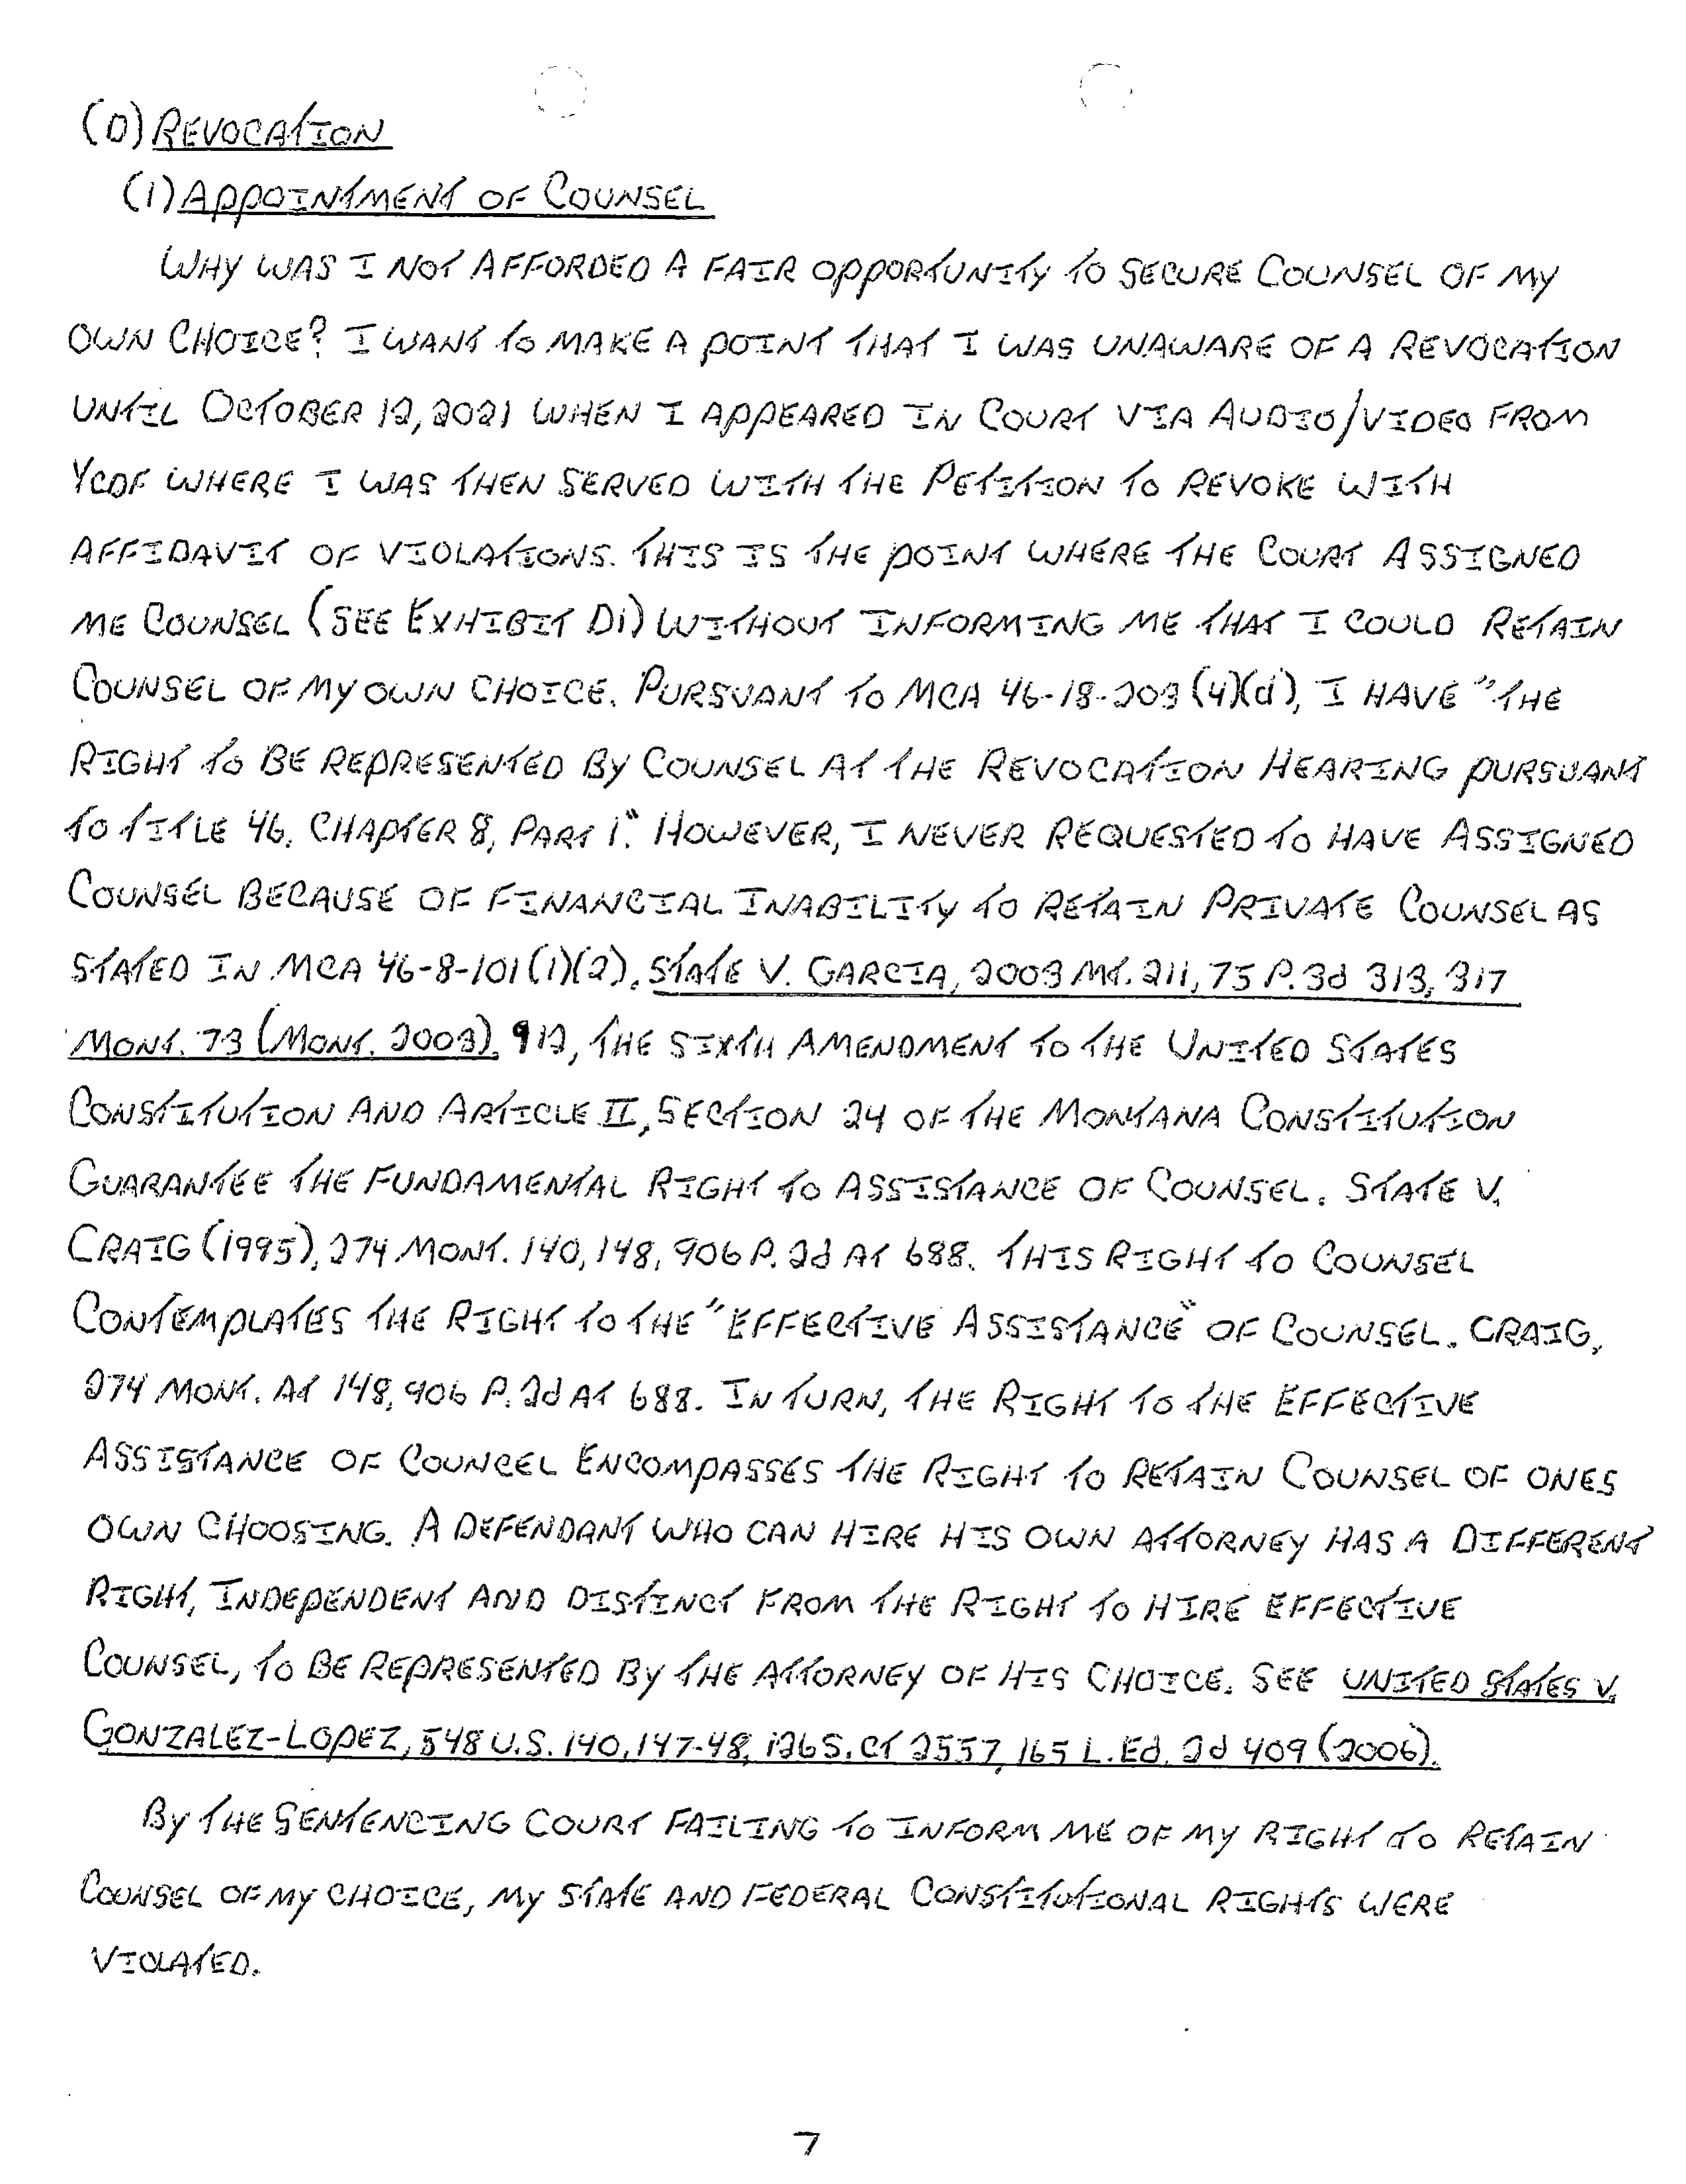 (D) REVOCATION
(1) APPOINTMENT OF COUNSEL
WHY WAS I NOT AFFORDED A FAIR OPPORTUNITY TO SECURE COUNSEL OF MY
OWN CHOICE? I WANT TO MAKE A POINT THAT I WAS UNAWARE OF A REVOCATION
UNTIL OCTOBER 12, 2021 WHEN I APPEARED IN COURT VIA AUDIO/VIDEO FROM
YCDF WHERE I WAS THEN SERVED WITH THE PETITION TO REVOKE WITH
AFFIDAVIT OF VIOLATIONS. THIS IS THE POINT WHERE THE COURT ASSIGNED
ME COUNSEL (SEE EXHIBIT D1) WITHOUT INFORMING ME THAT I COULD RETAIN
COUNSEL OF MY OWN CHOICE. PURSUANT TO MCA 46-18-203 (4)(d), I HAVE "THE
RIGHT TO BE REPRESENTED BY COUNSEL AT THE REVOCATION HEARING PURSUANT
TO TITLE 46, CHAPTER 8, PART 1." HOWEVER, I NEVER REQUESTED TO HAVE ASSIGNED
COUNSEL BECAUSE OF FINANCIAL INABILITY TO RETAIN PRIVATE COUNSEL AS
STATED IN MCA 46-8-101 (1)(2). STATE V. GARCIA, 2003 MT. 211, 75 P. 3d 313, 317
MONT. 73 (MONT. 2003), 912, THE SIXTH AMENDMENT TO THE UNITED STATES
CONSTITUTION AND ARTICLE II, SECTION 24 OF THE MONTANA CONSTITUTION
GUARANTEE THE FUNDAMENTAL RIGHT TO ASSISTANCE OF COUNSEL. STATE V.
CRAIG (1995), 274 MONT. 140, 148, 906 P. 2d AT 688. THIS RIGHT TO COUNSEL
CONTEMPLATES THE RIGHT TO THE "EFFECTIVE ASSISTANCE" OF COUNSEL. CRAIG,
274 MONT. AT 148, 906 P. 2d AT 688. IN TURN, THE RIGHT TO THE EFFECTIVE
ASSISTANCE OF COUNCEL ENCOMPASSES THE RIGHT TO RETAIN COUNSEL OF ONES
OWN CHOOSING. A DEFENDANT WHO CAN HIRE HIS OWN ATTORNEY HAS A DIFFERENT
RIGHT, INDEPENDENT AND DISTINCT FROM THE RIGHT TO HIRE EFFECTIVE
COUNSEL, TO BE REPRESENTED BY THE ATTORNEY OF HIS CHOICE. SEE UNITED STATES V.
GONZALEZ-LOPEZ, 548 U.S. 140, 147-48, 126 S. CT 2557, 165 L. Ed. 2d 409 (2006).
BY THE SENTENCING COURT FAILING TO INFORM ME OF MY RIGHT TO RETAIN
COUNSEL OF MY CHOICE, MY STATE AND FEDERAL CONSTITUTIONAL RIGHTS WERE
VIOLATED.
7